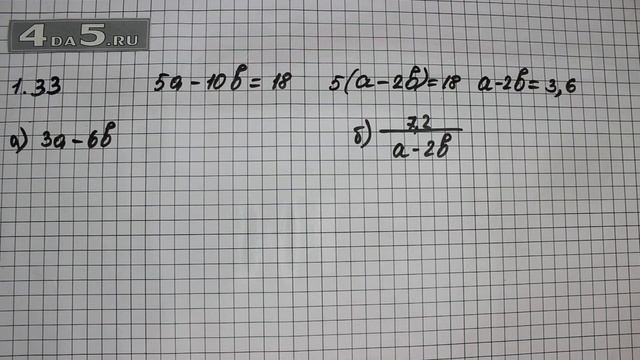 4DA5.RU
1.33 5a - 10b = 18 5(a - 2b) = 18 a - 2b = 3,6
а) 3a - 6b
б) 7,2 / a - 2b